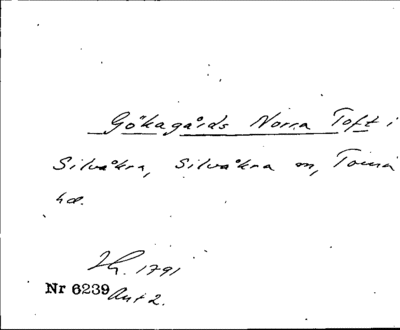 Gökagårds Norra Toft i
Silvåkra, Silvåkra sn, Torna
hd.
1791
Nr 6239
Akt 2.